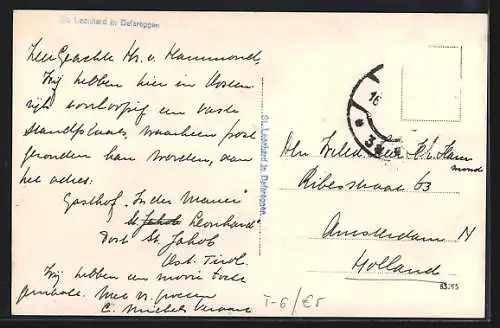 St. Leonhard in Defereggen
Zeer Geachte Hr. v. Hammond,
Wij hebben hier in Oosten
rijk voorloopig een vaste
standplaats, waarheen post
gezonden kan worden, aan
het adres:
Gasthof "In der Mauer"
St. Jakob Leonhard
Post St. Jakob
Ost. Tirol.
Wij hebben een mooie tocht
gemaakt. Met vr. groeten
C.
St. Leonhard in Defereggen.
16
Den Heer
Ribesstraat 63
Amsterdam N
Holland
T-6/€5